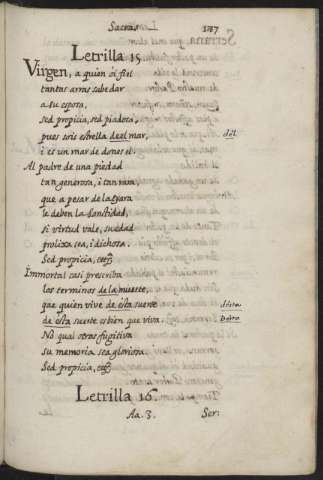 Sacras. 187
Letrilla 15.
Virgen, a quien oi fiel
tantas arras sabe dar
a su esposa,
sed propicia, sed piadosa,
pues sois estrella de el mar, del
i es un mar de dones el.
Al padre de una piedad
tan generosa, i tan rara,
que a pesar de la tiara
le deben la Santidad,
si virtud vale, su edad
prolixa sea, i dichosa.
Sed propicia, etc.
Immortal casi prescriba
los terminos de la muerte,
que quien vive de esta suerte
de esta suerte es bien que viva.
No qual otras fugitiva
su memoria sea gloriosa.
Sed propicia, etc.
Letrilla 16.
Aa. 3. Ser: